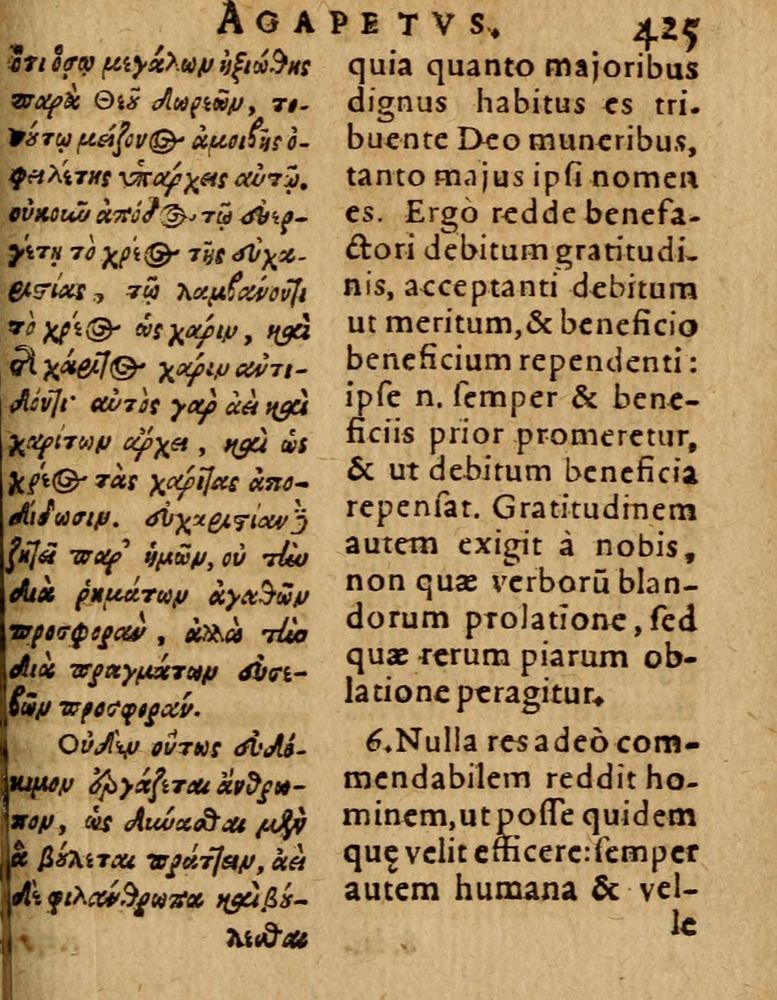 AGAPETVS. 425
ὅτι ὅσῳ μειζόνων ἠξιώθης
παρὰ Θεοῦ δωρεῶν, το-
σούτῳ μείζονος ἀμοιβῆς ὀ-
φειλέτης ὑπάρχεις αὐτῷ.
οὐκοῦν ἀπόδος τῷ εὐερ-
γέτῃ τὸ χρέος τῆς εὐχα-
ριστίας, τῷ λαμβάνοντι
τὸ χρέος ὡς χάριν, καὶ
χάριτος χάριν ἀντι-
διδόντι· αὐτὸς γὰρ ἀεὶ καὶ
χαρίτων ἄρχει, καὶ ὡς
χρέος τὰς χάριτας ἀπο-
δίδωσιν. εὐχαριστίαν
ζητεῖ παρ' ἡμῶν, οὐ τὴν
διὰ ῥημάτων ἀγαθῶν
προσφοράν, ἀλλὰ τὴν
διὰ πραγμάτων εὐσε-
βῶν προσφοράν.
Οὐδὲν οὕτως εὐδό-
κιμον ἐργάζεται ἄνθρω-
πον, ὡς δύνασθαι μὲν
ἃ βούλεται πράττειν, ἀεὶ
δὲ φιλάνθρωπα καὶ βού-
λεσθαι
quia quanto majoribus
dignus habitus es tri-
buente Deo muneribus,
tanto majus ipſi nomen
es. Ergò redde benefa-
ctori debitum gratitudi-
nis, acceptanti debitum
ut meritum, & beneficio
beneficium rependenti:
ipſe n. ſemper & bene-
ficiis prior promeretur,
& ut debitum beneficia
repenſat. Gratitudinem
autem exigit à nobis,
non quæ verborū blan-
dorum prolatione, ſed
quæ rerum piarum ob-
latione peragitur.
6. Nulla res adeò com-
mendabilem reddit ho-
minem, ut poſſe quidem
quę velit efficere: ſemper
autem humana & vel-
le